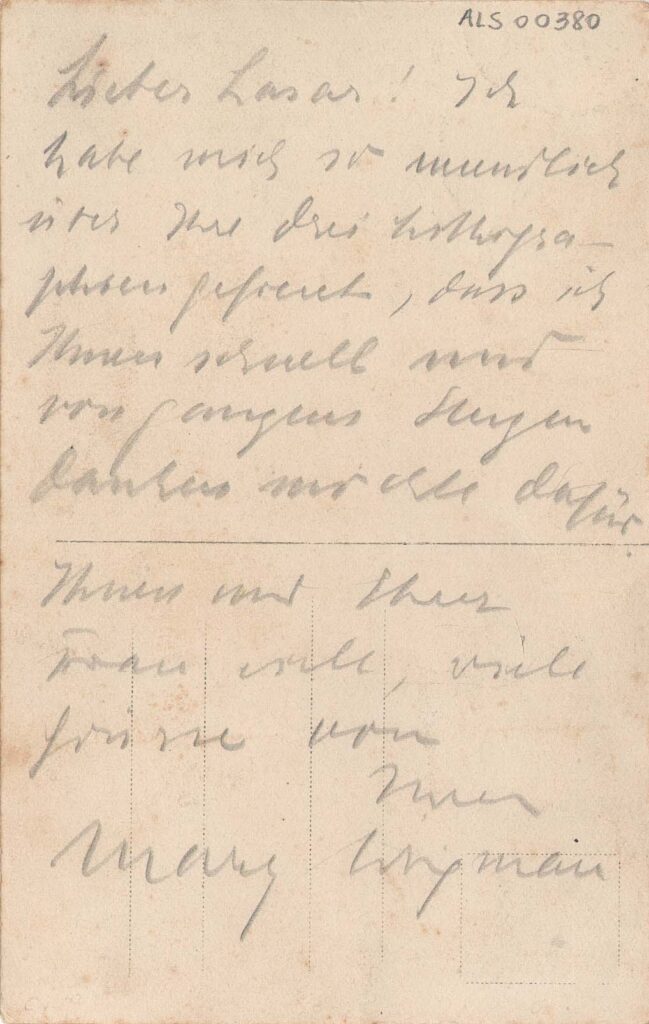 ALS 00380
Lieber Lasar! Ich
habe mich so
über Ihre drei Lithogra-
phien gefreut, dass ich
Ihnen schnell und
von ganzem Herzen
danken möchte dafür.
Ihnen und Ihrer
Frau viele, viele
Grüsse von
Ihrer
Mary Wigman